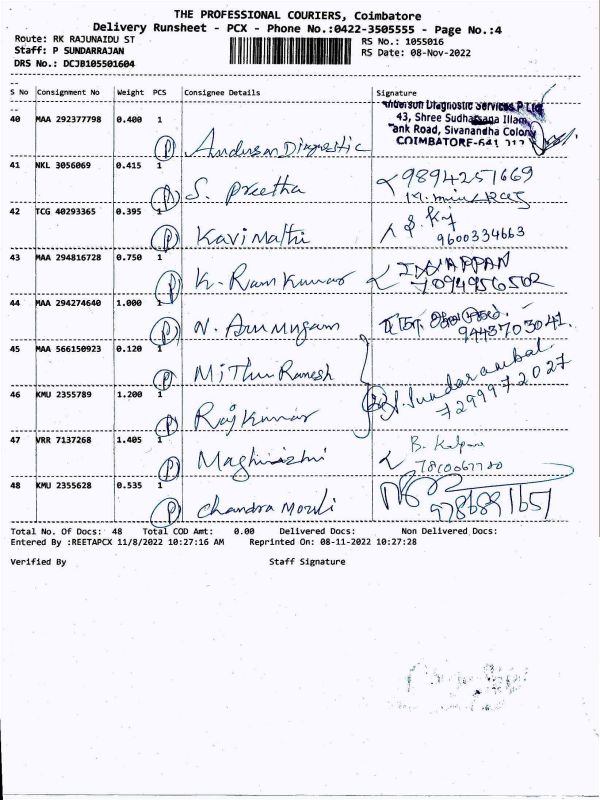 THE PROFESSIONAL COURIERS, Coimbatore
Delivery Runsheet - PCX - Phone No.:0422-3505555 - Page No.:4
Route: RK RAJUNAIDU ST
RS No.: 1055016
Staff: P SUNDARRAJAN
RS Date: 08-Nov-2022
DRS No.: DCJB105501604
S No Consignment No Weight PCS Consignee Details Signature
40 MAA 292377798 0.400 1 (P) Anderson Diagnostic
Anderson Diagnostic Services P Ltd
43, Shree Sudhatsana Illam,
Tank Road, Sivanandha Colony
COIMBATORE-641 012
41 NKL 3056069 0.415 1 (P) S. Preetha 9894251669
42 TCG 40293365 0.395 1 (P) Kavi Mathi
9600334663
43 MAA 294816728 0.750 1 (P) K. Ram Kumar IXXAPPAN
7094956502
44 MAA 294274640 1.000 1 (P) N. Arumugam
9443703041.
45 MAA 566150923 0.120 1 (P) Mithu Ramesh
46 KMU 2355789 1.200 1 (P) Raj Kumar Sundarambal
7299972027
47 VRR 7137268 1.405 1 (P) Maghizhni B. Kalpana
48 KMU 2355628 0.535 1 (P) Chandra Mouli
9786891651
Total No. Of Docs: 48 Total COD Amt: 0.00 Delivered Docs: Non Delivered Docs:
Entered By :REETAPCX 11/8/2022 10:27:16 AM Reprinted On: 08-11-2022 10:27:28
Verified By Staff Signature